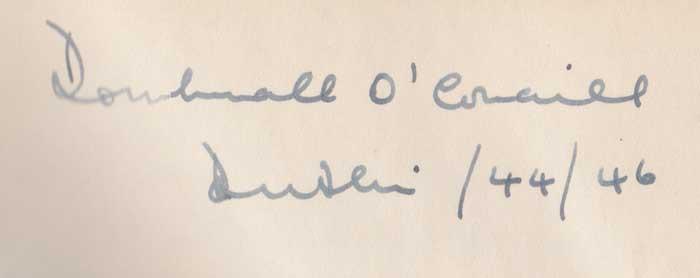 Domhnall O'Conaill
Dublin /44/46